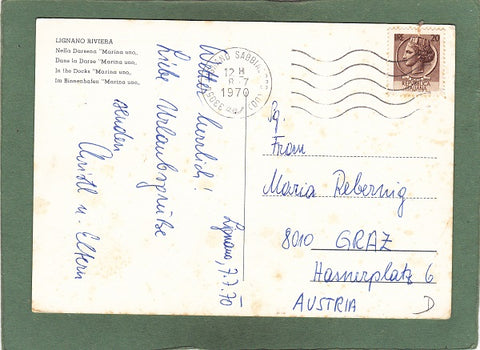 LIGNANO RIVIERA
Nella Darsena "Marina uno„
Dans la Darse "Marina uno„
In the Docks "Marina uno„
Im Binnenhafen "Marina uno„
Lignano, 7.7.70
Wetter herrlich!
Liebe Urlaubsgrüße
senden
Christl u. Eltern
LIGNANO SABBIADORO
12 H
8. 7
1970
Frau
Maria Rebernig
8010 GRAZ
Hasnerplatz 6
AUSTRIA
D